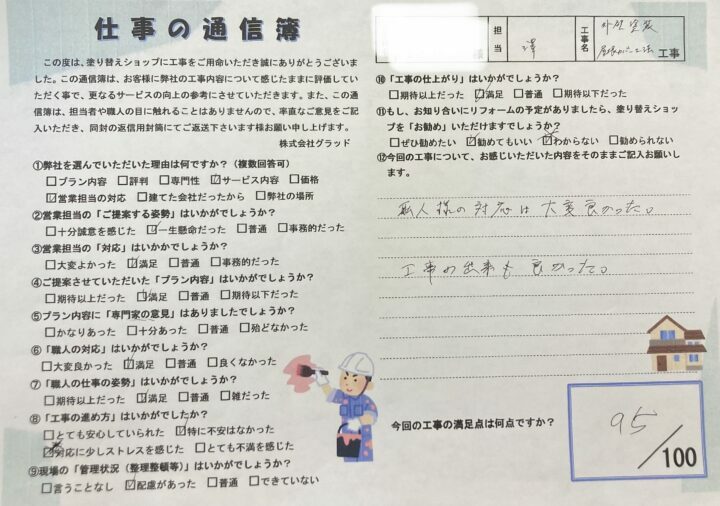 仕事の通信簿
この度は、塗り替えショップに工事をご用命いただき誠にありがとうございま
した。この通信簿は、お客様に弊社の工事内容について感じたままに評価してい
ただく事で、更なるサービスの向上の参考にさせていただきます。また、この通
信簿は、担当者や職人の目に触れることはありませんので、率直なご意見をご記
入いただき、同封の返信用封筒にてご返送下さいます様お願い申し上げます。
株式会社グラッド
①弊社を選んでいただいた理由は何ですか？（複数回答可）
□プラン内容 □評判 □専門性 ☑サービス内容 □価格
☑営業担当の対応 □建てた会社だったから □弊社の場所
②営業担当の「ご提案する姿勢」はいかがでしょうか？
□十分誠意を感じた ☑一生懸命だった □普通 □事務的だった
③営業担当の「対応」はいかかでしょうか？
□大変よかった ☑満足 □普通 □事務的だった
④ご提案させていただいた「プラン内容」はいかがでしょうか？
□期待以上だった ☑満足 □普通 □期待以下だった
⑤プラン内容に「専門家の意見」はありましたでしょうか？
□かなりあった □十分あった □普通 □殆どなかった
⑥「職人の対応」はいかがでしょうか？
□大変良かった ☑満足 □普通 □良くなかった
⑦「職人の仕事の姿勢」はいかがでしょうか？
□期待以上だった ☑満足 □普通 □雑だった
⑧「工事の進め方」はいかがでしたか？
□とても安心していられた ☑特に不安はなかった
☑対応に少しストレスを感じた □とても不満を感じた
⑨現場の「管理状況（整理整頓等）」はいかがでしょうか？
□言うことなし ☑配慮があった □普通 □できていない
担当 澤 工事名 外壁塗装
工事
⑩「工事の仕上がり」はいかがでしょうか？
□期待以上だった ☑満足 □普通 □期待以下だった
⑪もし、お知り合いにリフォームの予定がありましたら、塗り替えショッ
プを「お勧め」いただけますでしょうか？
□ぜひ勧めたい ☑勧めてもいい ☑わからない □勧められない
⑫今回の工事について、お感じいただいた内容をそのままご記入お願いし
ます。
職人様の対応は大変良かった。
工事の出来も良かった。
今回の工事の満足点は何点ですか？
95/100